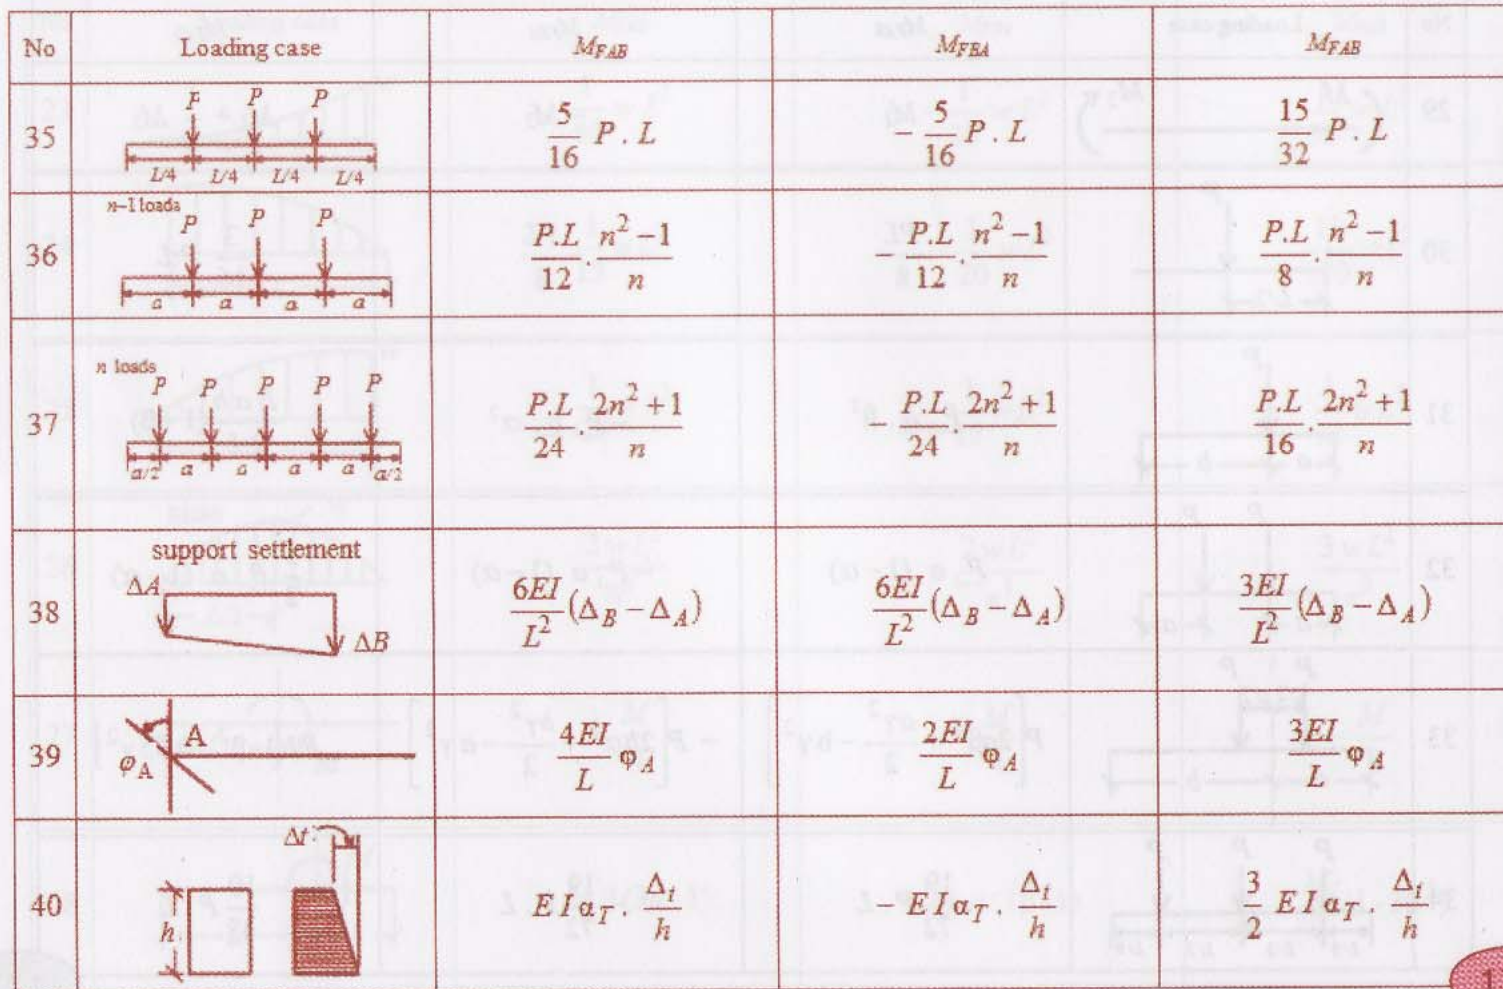 No Loading case M_FAB M_FBA M_FAB
35 P P P L/4 L/4 L/4 L/4 5/16 P . L − 5/16 P . L 15/32 P . L
36 n−1 loads P P P a a a a P.L/12 . n² − 1/n − P.L/12 . n² − 1/n P.L/8 . n² − 1/n
37 n loads P P P P P a/2 a a a a a/2 P.L/24 . 2n² + 1/n − P.L/24 . 2n² + 1/n P.L/16 . 2n² + 1/n
38 support settlement ΔA ΔB 6EI/L² (Δ_B − Δ_A) 6EI/L² (Δ_B − Δ_A) 3EI/L² (Δ_B − Δ_A)
39 A φ_A 4EI/L φ_A 2EI/L φ_A 3EI/L φ_A
40 Δt h EI α_T . Δ_t/h − EI α_T . Δ_t/h 3/2 EI α_T . Δ_t/h